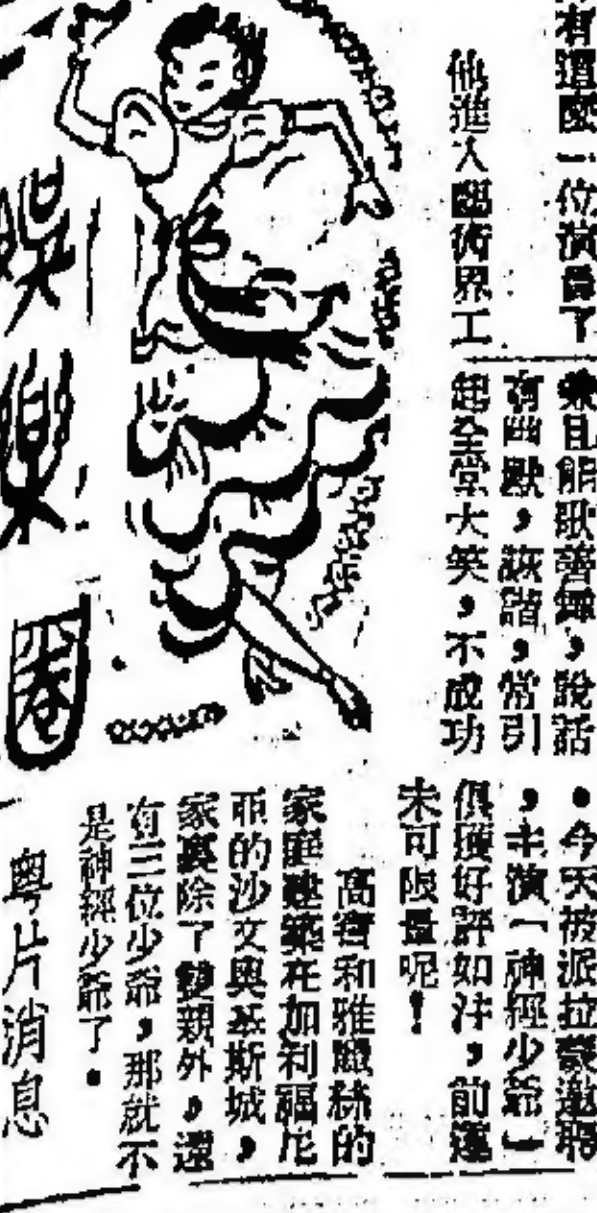 有這麼一位演員了
他進入藝術界工
兼且能歌善舞，說話
有幽默，詼諧，常引
起全堂大笑，不成功
。今天被派拉蒙邀聘
，主演「神經少爺」
俱獲好評如洋，前運
未可限量呢！
高賓和雅麗絲的
家庭建築在加利福尼
亞的沙文奧基斯城，
家裏除了雙親外，還
有三位少爺，那就不
是神經少爺了。
娛樂圈
粤片消息